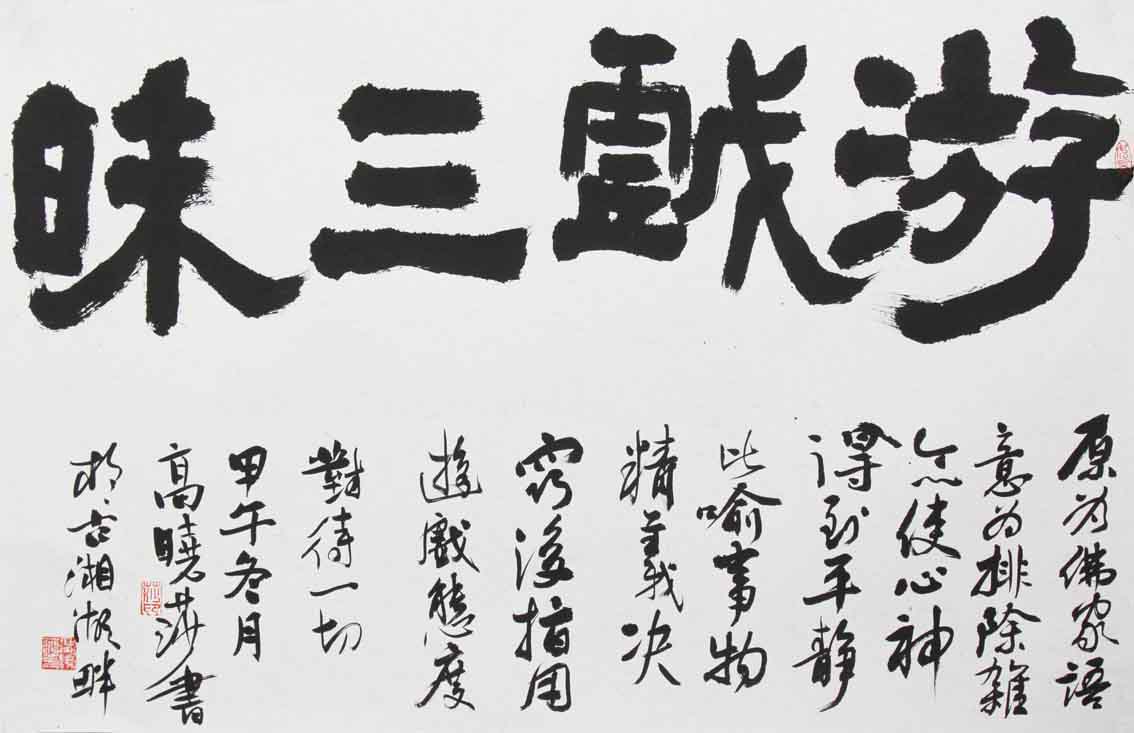 游戲三昧
原为佛家語
意为排除雜
念使心神
得到平静
比喻事物
精義决
窍後指用
遊戲態度
對待一切
甲午冬月
高曉莎書
於古湘湖畔